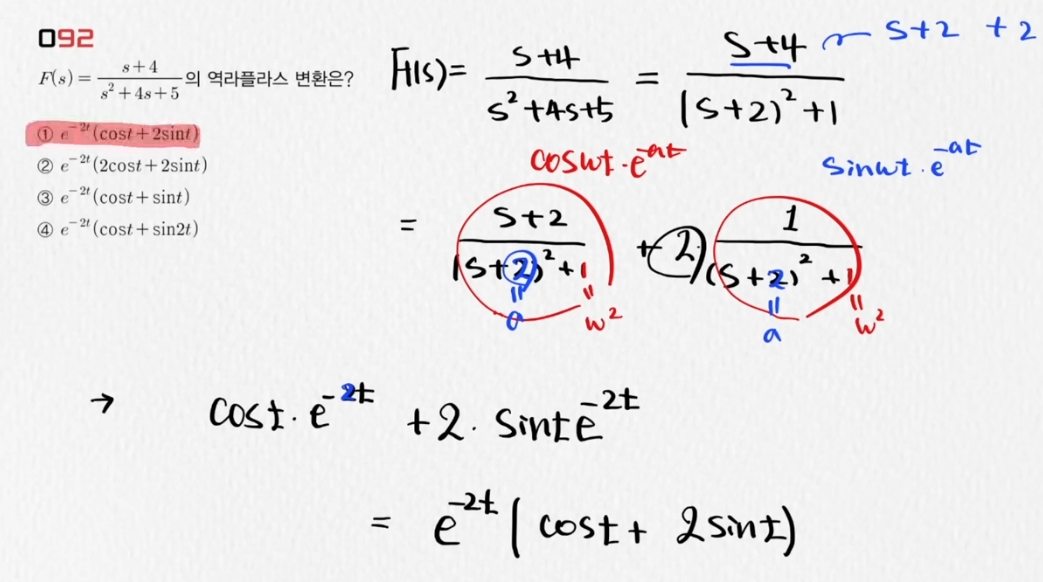 092
F(s) = (s+4)/(s²+4s+5) 의 역라플라스 변환은?
① e^{-2t}(cost+2sint)
② e^{-2t}(2cost+2sint)
③ e^{-2t}(cost+sint)
④ e^{-2t}(cost+sin2t)
F(s) = (s+4)/(s²+4s+5) = (s+4)/((s+2)²+1) s+2 +2
coswt·e^{-at} sinwt·e^{-at}
= (s+2)/((s+2)²+1) + 2 1/((s+2)²+1)
= a = w² = a = w²
→ cost·e^{-2t} +2·sinte^{-2t}
= e^{-2t}(cost+ 2sint)